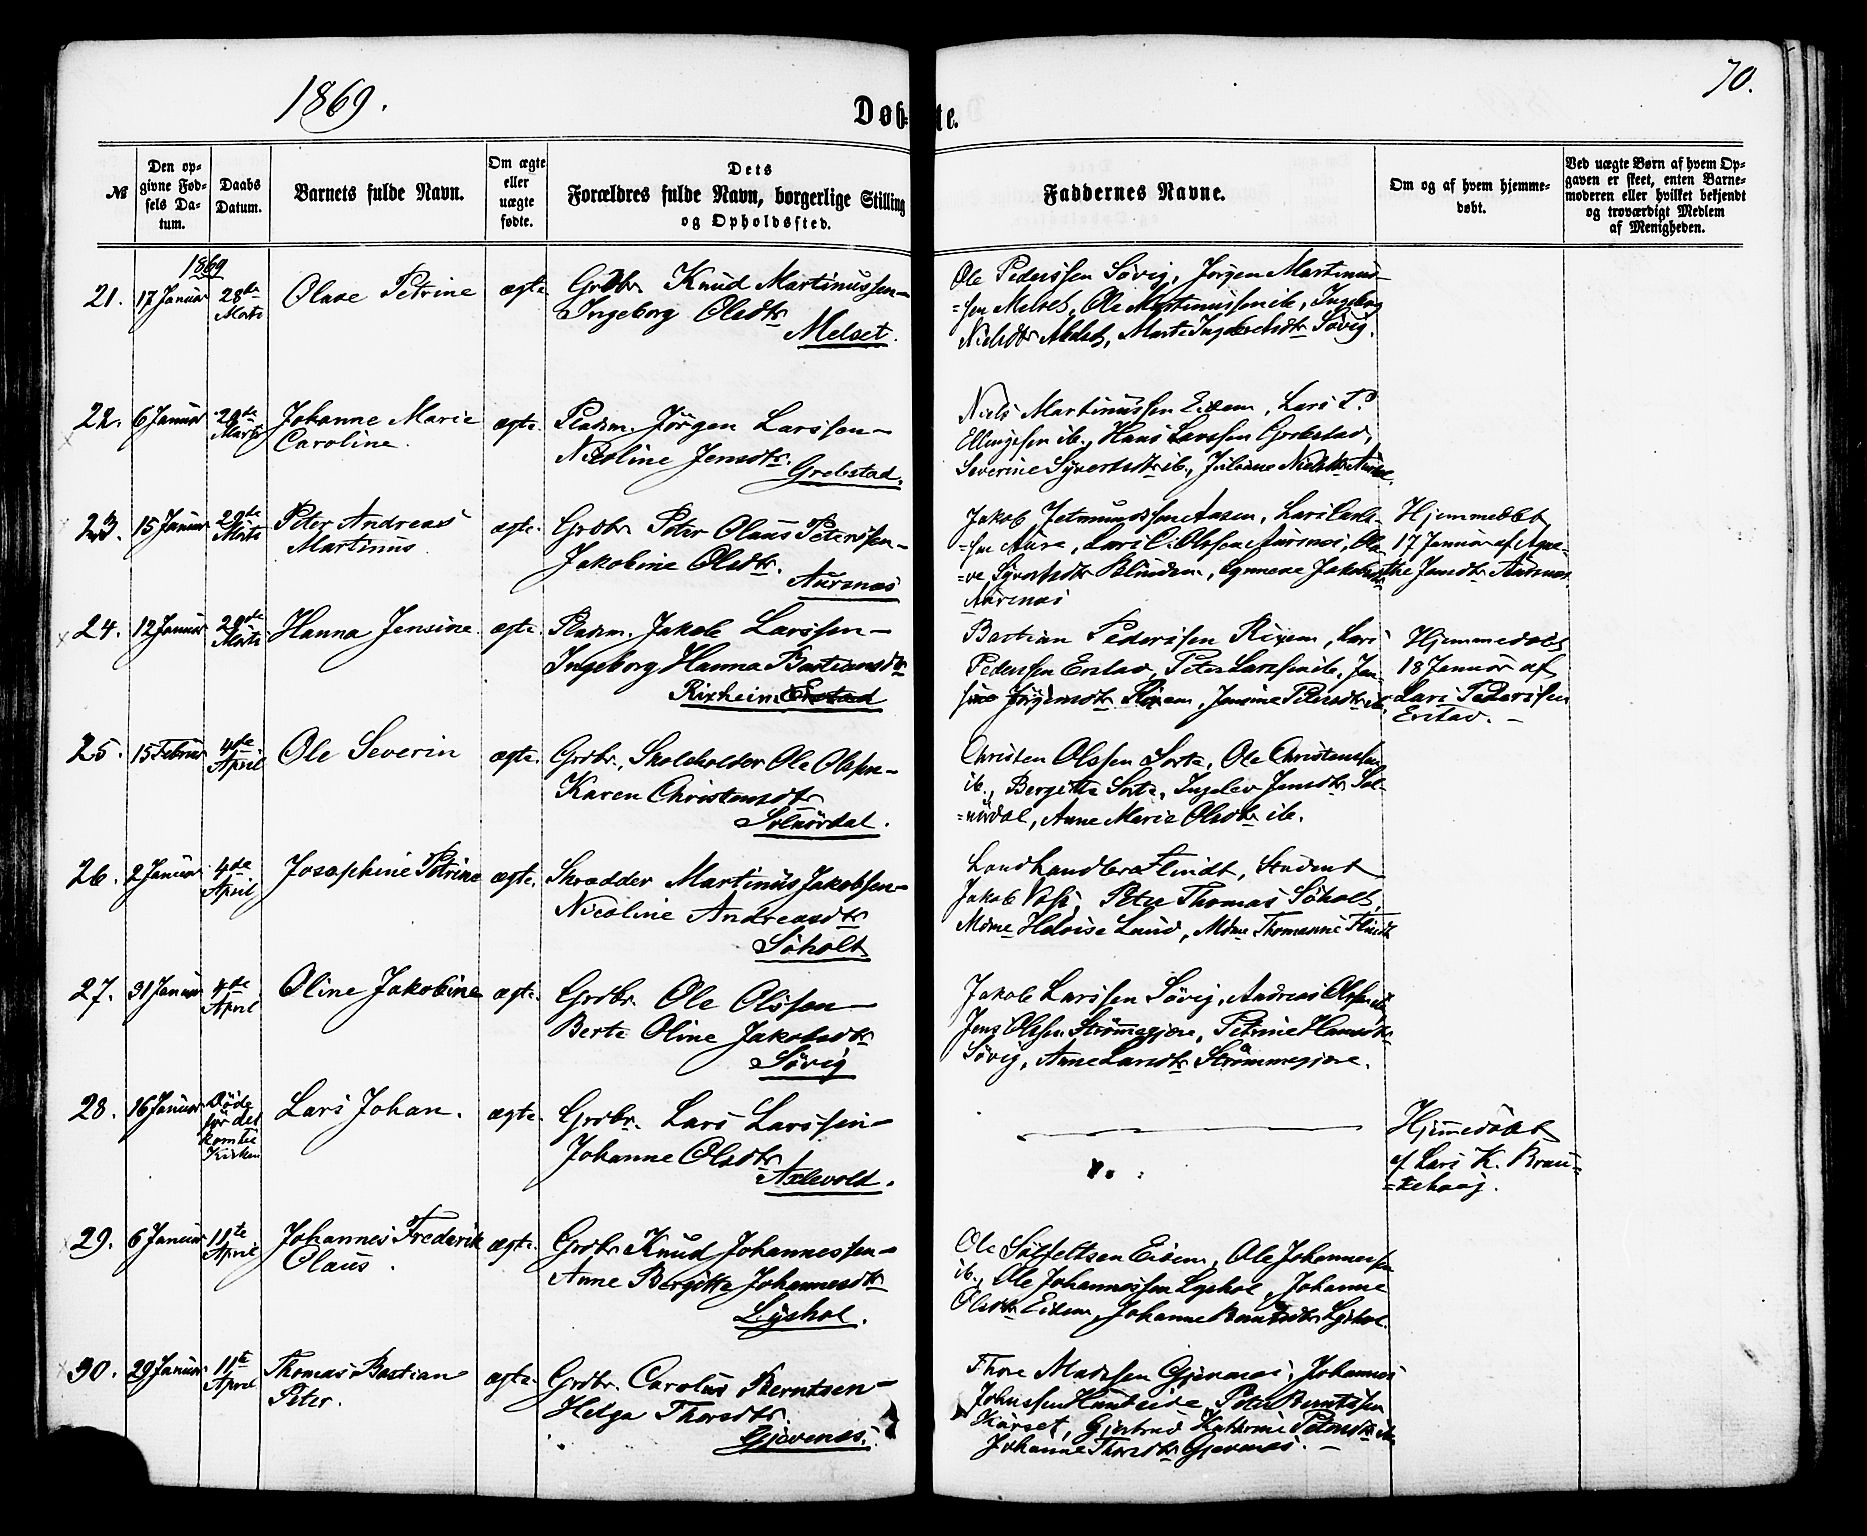 1869.
Døbte.
70.
№
Den opgivne Fødsels Datum.
Daabs Datum.
Barnets fulde Navn.
Om ægte eller uægte fødte.
Dets
Forældres fulde Navn, borgerlige Stilling
og Opholdssted.
Faddernes Navne.
Om og af hvem hjemmedøbt.
Ved uægte Børn af hvem Opgaven er skeet, enten Barnemoderen eller hvilket bekjendt og troværdigt Medlem af Menigheden.
1869
21. 17 Januar 28de Marts Olave Petrine ægte Grdbr. Knud Martinussen –
Ingeborg Olsdtr
Melset.
Ole Pederssen Søvig, Jørgen Martinus-
=sen Melset, Ole Martinussen ib., Ingeborg
Nielsdtr Melset, Marte Ingebretsdtr Søvig.
22. 6 Januar 29de Marts Johanne Marie
Caroline.
ægte Pladsm. Jörgen Larssen –
Nicoline Jensdtr.
Grebstad.
Niels Martinussen Eidem, Lars P.
Ellingssen ib., Hans Larssen Grebstad,
Severine Syvertsdtr ib., Juliane Nielsdtr
23. 15 Januar 29de Marts Peter Andreas
Martinus.
ægte. Grdbr Peter Olaus Peterssen –
Jakobine Olsdtr.
Aursnæs
Jakob Jetmundssen Aasen, Lars Carls-
=sen Aure, Lars C. Olssen Aursnæs, Ola-
=ve Syvertsdtr Blindem, Synneve Jakobsdtr
Aursnæs
Hjemmedøbt
17 Januar af Aga-
the Jansdtr Aursnæs
24. 12 Januar 29de Marts Hanna Jensine ægte Pladsm. Jakob Larssen –
Ingeborg Hanna Bastiansdtr
Rixheim Erstad
Bastian Pederssen Rixem, Lars
Pederssen Erstad, Peter Larssen ib., Jen-
sine Jörgensdtr Rixem, Jensine Petersdtr ib.
Hjemmedøbt
18 Januar af
Lars Pederssen
Erstad. –
25. 15 Februar 4de April Ole Severin ægte. Grdbr., Skoleholder Ole Olssen –
Karen Christensdtr
Solnördal.
Christen Olssen Sorte, Ole Christenssen
ib., Bergitte Sorte, Ingelev Jensdtr Sol-
=nördal, Anne Marie Olsdtr ib.
26. 2 Januar 4de April Josephine Petrine ægte. Skrædder Martinus Jakobsen –
Nicoline Andreasdtr
Söholt
Landhandler Flindt, Student
Jakob Voss, Peter Thomas Söholt,
Mdme Heloise Lund, Mdme Thomasine Flindt
27. 31 Januar 4de April Oline Jakobine ægte. Grdbr. Ole Olssen –
Berte Oline Jakobsdtr
Sövig
Jakob Larssen Sövig, Andreas Olssen ib.
Jens Olssen Strömmegjære, Petrine Hansdtr
Sövig, Anne Larsdtr Strömmegjære.
28. 16 Januar Döde
för det
kom til
Kirken
Lars Johan. ægte. Grdbr. Lars Larssen –
Johanne Olsdtr
Aklevold.
Hjemmedöbt
af Lars K. Brau-
=tehaug.
29. 6 Januar 11te April Johannes Frederik
Olaus.
ægte. Grdbr Knud Johannessen –
Anne Bergitte Johannesdtr
Lyshol.
Ole Eidem, Ole Johannessen
ib., Ole Johannessen Lyshol, Johanne
Olsdtr Eidem, Johanne Berntsdtr Lyshol.
30. 29 Januar 11te April Thomas Bastian
Peter.
ægte. Grdbr. Carolus Berntsen –
Helga Thorsdtr.
Gjævenæs.
Thore Madssen Gjævenæs, Johannes
Johnssen Hundeide, Peter Berntssen
Kurset, Gjertrud Katherine Petersdtr ib.
Johanne Thorsdtr Gjævenæs. –